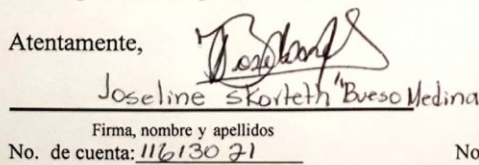 Atentamente,
Joseline Skorleth Bueso Medina
Firma, nombre y apellidos
No. de cuenta: 11613021 No